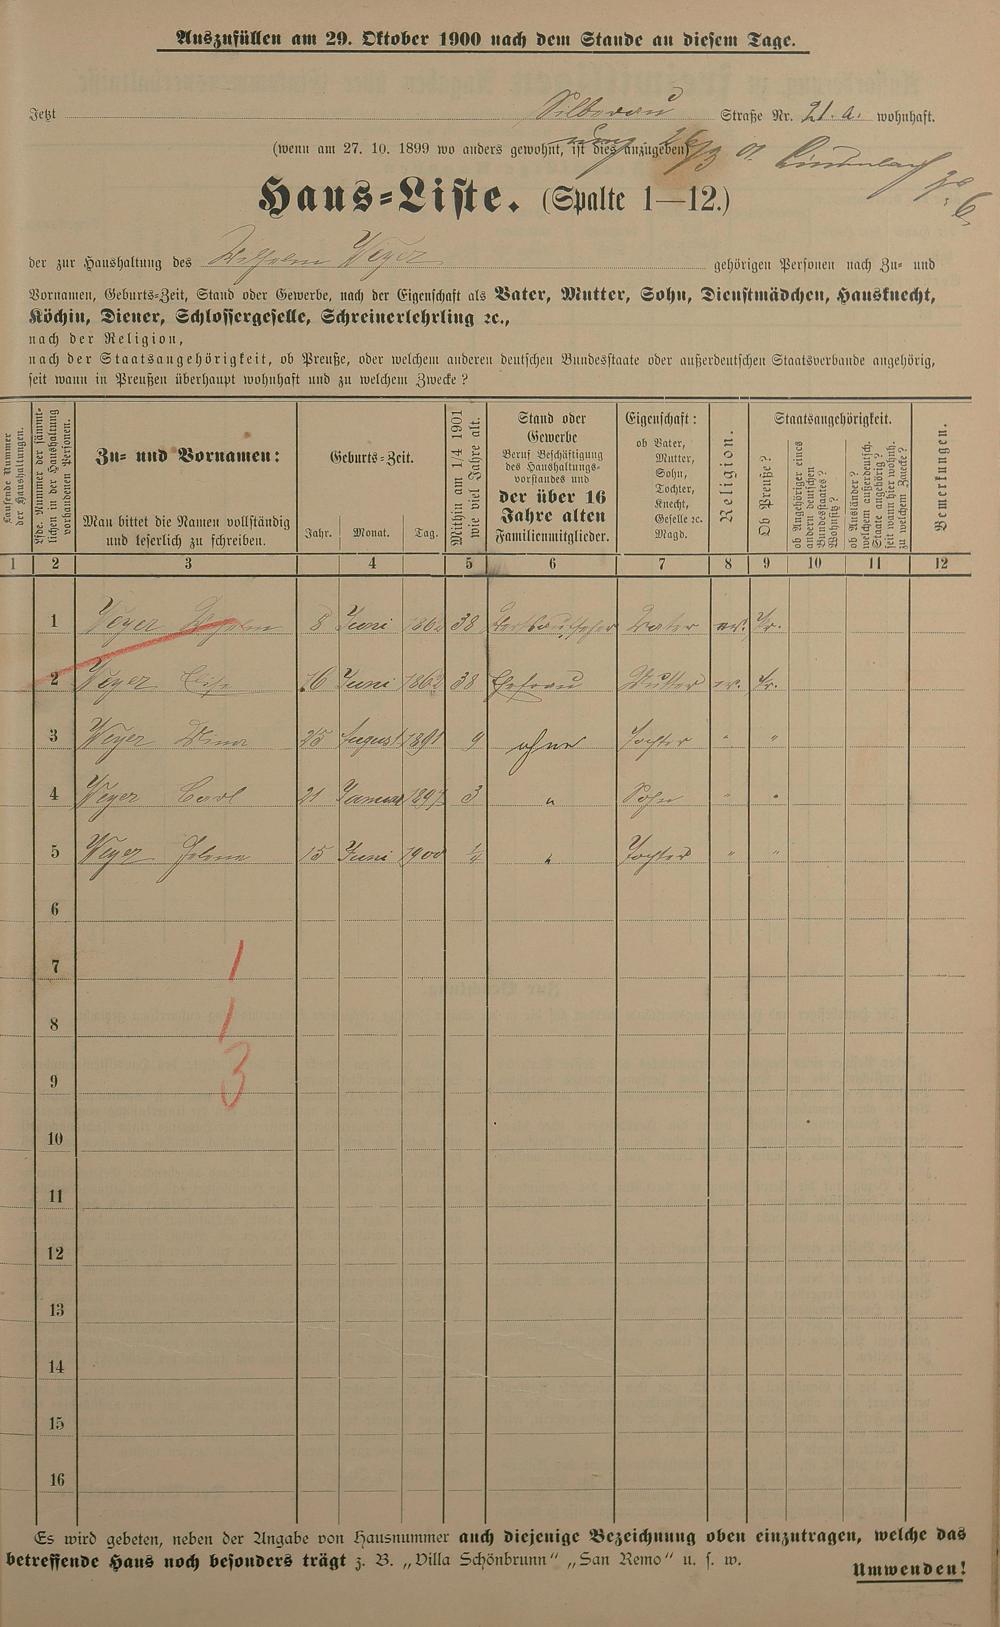 Auszufüllen am 29. Oktober 1900 nach dem Stande an diesem Tage.
Jetzt Silberau Straße Nr. 21.a. wohnhaft.
(wenn am 27. 10. 1899 wo anders gewohnt, ist dies anzugeben)
Haus-Liste. (Spalte 1—12.)
der zur Haushaltung des Wilhelm Weyer gehörigen Personen nach Zu- und
Vornamen, Geburts-Zeit, Stand oder Gewerbe, nach der Eigenschaft als Vater, Mutter, Sohn, Dienstmädchen, Hausknecht,
Köchin, Diener, Schlossergeselle, Schreinerlehrling ꝛc.,
nach der Religion,
nach der Staatsangehörigkeit, ob Preuße, oder welchem anderen deutschen Bundesstaate oder außerdeutschen Staatsverbande angehörig,
seit wann in Preußen überhaupt wohnhaft und zu welchem Zwecke?
Laufende Nummer der Haushaltungen.
Lfde. Nummer der sämmtlichen in der Haushaltung vorhandenen Personen.
Zu- und Vornamen:
Man bittet die Namen vollständig
und leserlich zu schreiben.
Geburts-Zeit.
Jahr. Monat. Tag.
Mithin am 1/4 1901 wie viel Jahre alt.
Stand oder
Gewerbe
Beruf Beschäftigung
des Haushaltungs-
vorstandes und
der über 16
Jahre alten
Familienmitglieder.
Eigenschaft:
ob Vater,
Mutter,
Sohn,
Tochter,
Knecht,
Geselle ꝛc.
Magd.
Religion.
Staatsangehörigkeit.
Ob Preuße?
ob Angehöriger eines andern deutschen Bundesstaates? Wohnsitz?
ob Ausländer? welchem außerdeutsch. Staate angehörig? seit wann hier wohnh. zu welchem Zwecke?
Bemerkungen.
1 2 3 4 5 6 7 8 9 10 11 12
1 Weyer Wilhelm 8 Juni 1862 38 Vater ev. Pr.
2 Weyer Elise 16 Juni 1862 38 Ehefrau Mutter ev. Pr.
3 Weyer Mina 25 August 1891 9 ohne Tochter " "
4 Weyer Carl 21 Januar 1897 3 " Sohn " "
5 Weyer Helena 15 Juni 1900 1/4 " Tochter " "
6
7 1
8 1
9 3
10
11
12
13
14
15
16
Es wird gebeten, neben der Angabe von Hausnummer auch diejenige Bezeichnung oben einzutragen, welche das
betreffende Haus noch besonders trägt z. B. „Villa Schönbrunn" „San Remo" u. s. w.
Umwenden!